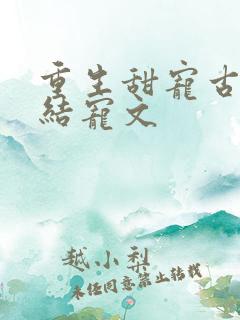 重生甜寵古
結寵文
越小梨
未经同意禁止转载